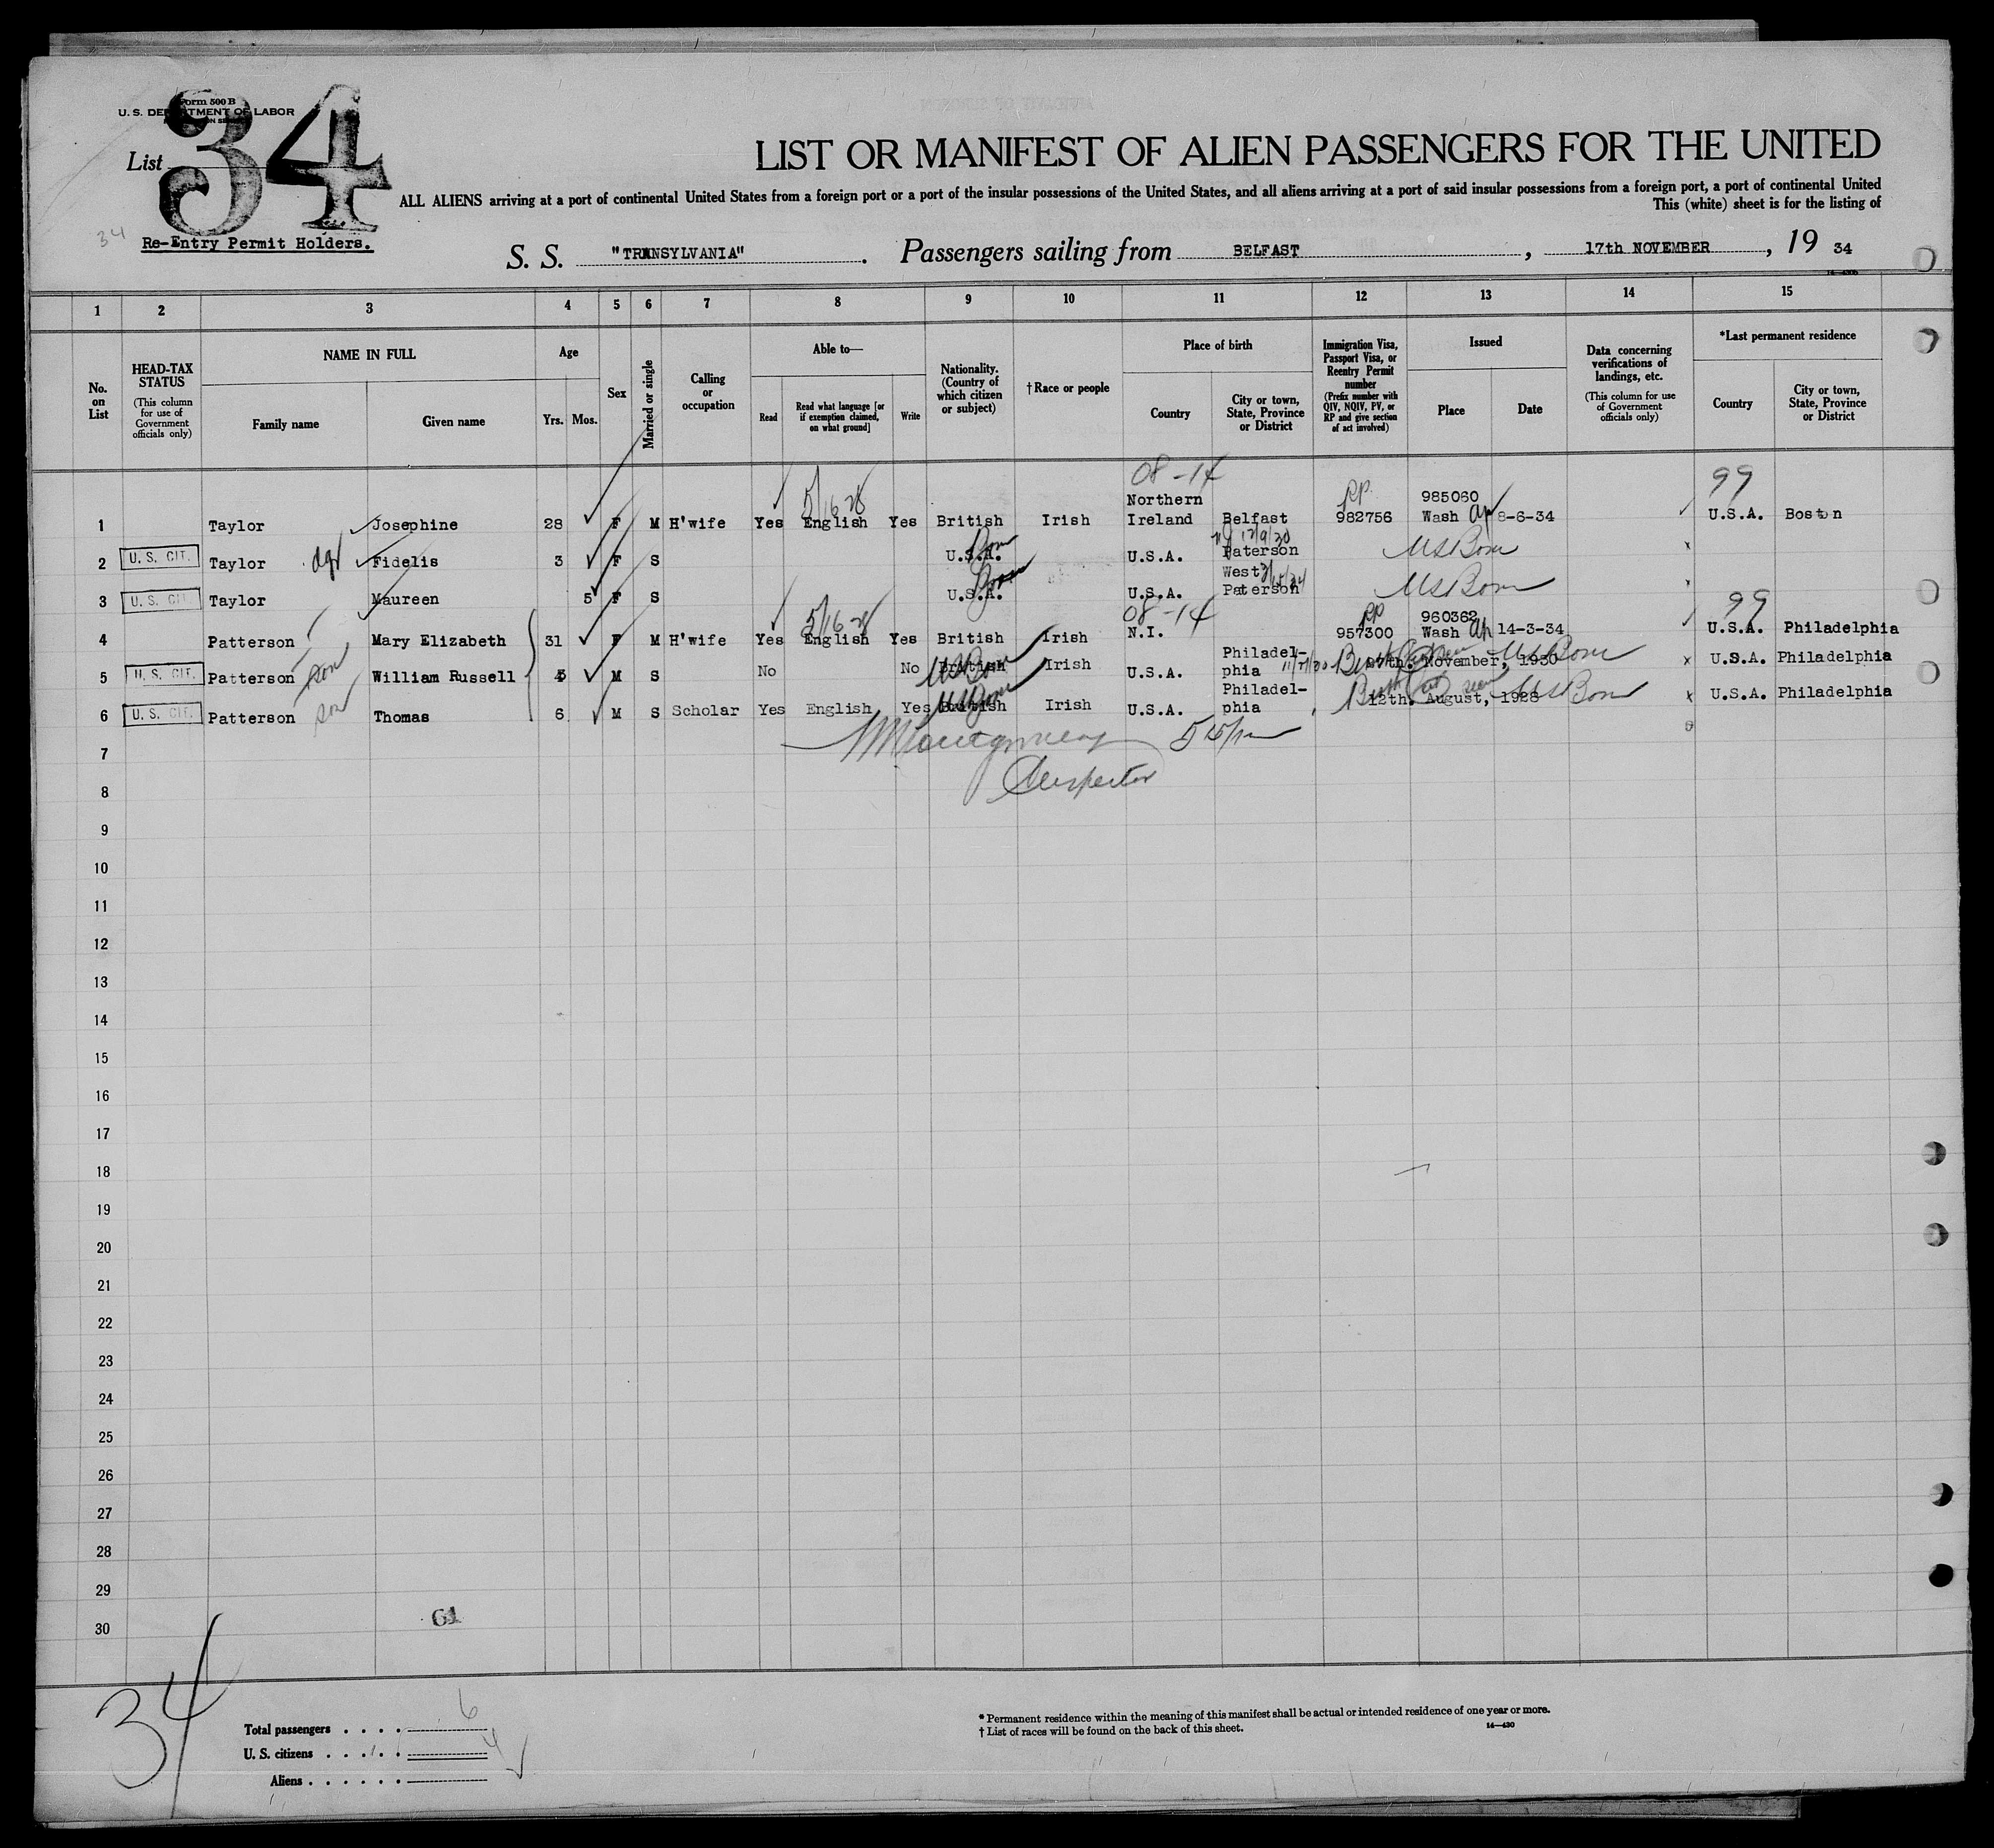 Form 500 B
U. S. DEPARTMENT OF LABOR
List 34
34
Re-Entry Permit Holders.
LIST OR MANIFEST OF ALIEN PASSENGERS FOR THE UNITED
ALL ALIENS arriving at a port of continental United States from a foreign port or a port of the insular possessions of the United States, and all aliens arriving at a port of said insular possessions from a foreign port, a port of continental United
This (white) sheet is for the listing of
S. S. "TRANSYLVANIA". Passengers sailing from BELFAST, 17th NOVEMBER, 19 34
1 2 3 4 5 6 7 8 9 10 11 12 13 14 15
No. on List
HEAD-TAX STATUS (This column for use of Government officials only)
NAME IN FULL
Family name
Given name
Age
Yrs. Mos.
Sex
Married or single
Calling or occupation
Able to—
Read
Read what language [or if exemption claimed, on what ground]
Write
Nationality. (Country of which citizen or subject)
†Race or people
Place of birth
Country
City or town, State, Province or District
Immigration Visa, Passport Visa, or Reentry Permit number (Prefix number with QIV, NQIV, PV, or RP and give section of act involved)
Issued
Place
Date
Data concerning verifications of landings, etc. (This column for use of Government officials only)
*Last permanent residence
Country
City or town, State, Province or District
08-14 99
5/16 28 Northern RP 985060
1 Taylor Josephine 28 F M H'wife Yes English Yes British Irish Ireland Belfast 982756 Wash 8-6-34 U.S.A. Boston
NJ 12/9/30
2 U. S. CIT. Taylor dgt Fidelis 3 F S U.S.A. Born U.S.A. Paterson US Born x
West
3 U. S. CIT. Taylor Maureen 5 F S U.S.A. Born U.S.A. Paterson US Born
5/16 28 08-14 RP 960362 99
4 Patterson Mary Elizabeth 31 F M H'wife Yes English Yes British Irish N.I. 957300 Wash 14-3-34 U.S.A. Philadelphia
Philadel-
5 U. S. CIT. Patterson son William Russell M S No No British US Born Irish U.S.A. phia 11/27/30 November, 1930 US Born x U.S.A. Philadelphia
Philadel-
6 U. S. CIT. Patterson son Thomas 6 M S Scholar Yes English Yes British US Born Irish U.S.A. phia 12th. August, 1928 US Born x U.S.A. Philadelphia
7 Montgomery
8 Inspector
9
10
11
12
13
14
15
16
17
18
19
20
21
22
23
24
25
26
27
28
29
30
61
34
Total passengers . . . . 6
U. S. citizens . . . . 4
Aliens . . . . . .
* Permanent residence within the meaning of this manifest shall be actual or intended residence of one year or more.
† List of races will be found on the back of this sheet.
14—430